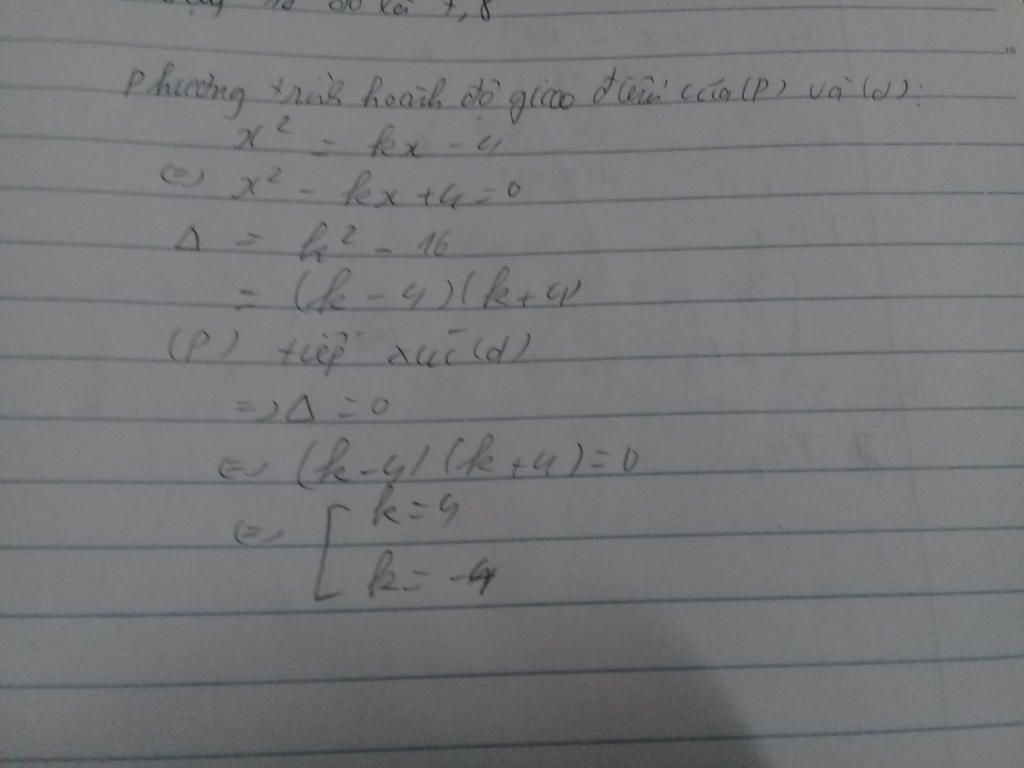 là 7, 8
Phương trình hoành độ giao điểm của (P) và (d):
x² = kx - 4
<=> x² - kx + 4 = 0
Δ = k² - 16
= (k - 4)(k + 4)
(P) tiếp xúc (d)
=> Δ = 0
<=> (k - 4)(k + 4) = 0
<=> [ k = 4
k = -4